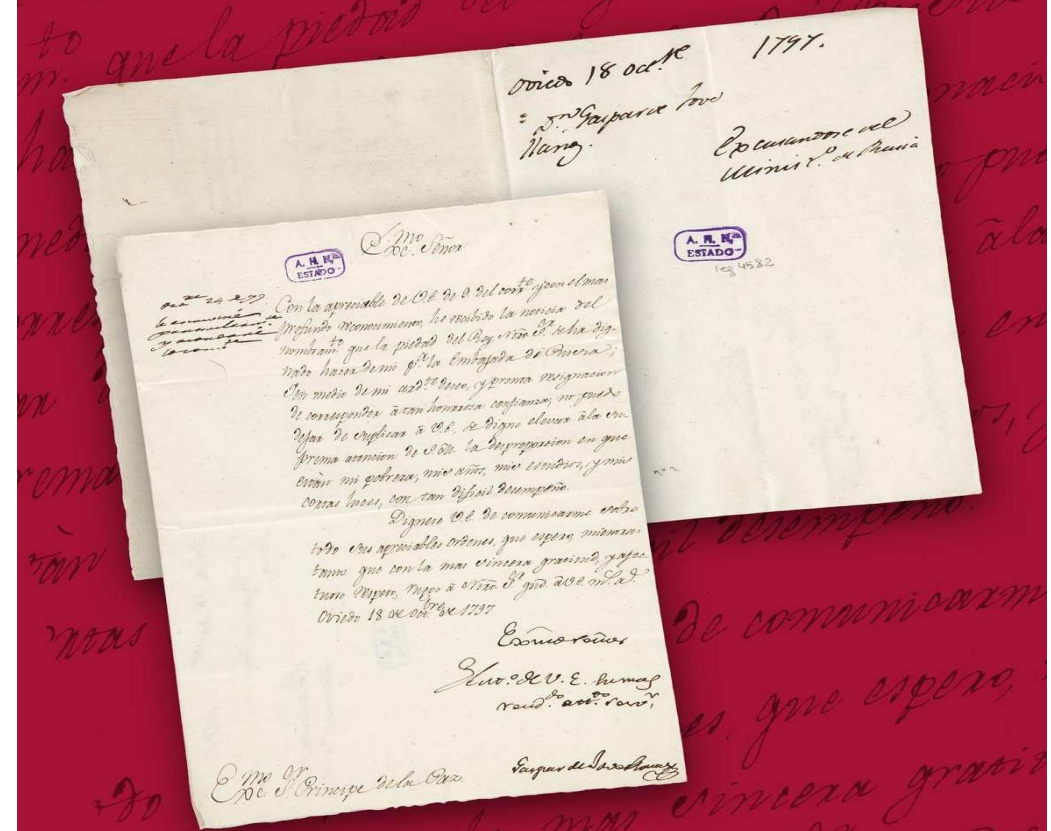 Oviedo 18 oct.e 1797.
= Dn Gaspar de Jove
llanos.
Excusandose del
Minist.o de Rusia
A. H. N.
ESTADO
leg 4582
Exc.mo Señor
A. H. N.
ESTADO
Con la apreciable de V.E. de 9 del corr.te y con el mas
profundo reconocimiento, he recibido la noticia del
nombram.to que la piedad del Rey Nrõ S.or se ha dig-
nado hacer de mi p.a la Embajada de Rusia;
en medio de mi ard.te deseo, y pronta resignacion
de corresponder à tan honrosa confianza, no puedo
dejar de suplicar à V.E. se digne elevar àla su-
prema atencion de S.M. la desproporcion en que
están mi pobreza, mis años, mis estudios, y mis
cortas luces, con tan dificil desempeño.
Dignese V.E. de comunicarme sobre
todo sus apreciables ordenes, que espero, mientras
tanto que con la mas sincera gratitud, y afec
tuoso respeto, ruego à Nrõ S.or gue. à V.E. m.s a.s
Oviedo 18 de Oct.bre de 1797
Exmo señor
de V. E. su mas
rend.do att.to serv.r
Gaspar de Jove Llanos
Exc.mo S.or Principe de la Paz.